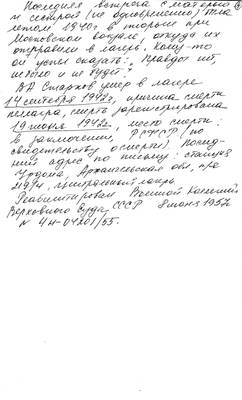 Последняя встреча с матерью
и сестрой (не одновременно) была
летом 1940 г. в тюрьме при
Московском вокзале, откуда их
отправили в лагерь. Кому-то
он успел сказать: "Правды нет,
не было и не будет."
А.А. Старков умер в лагере
14 сентября 1942 г., причина смерти
пеллагра, смерть зарегистрирована
19 1942 г., место смерти:
в заключении, РСФСР (по
свидетельству о смерти), послед-
ний адрес по письму: станция
Урдома, Архангельская обл., п/я
219/4, Центральный лагерь.
Реабилитирован Военной Коллегией
Верховного Суда СССР 8 июня 1957
N 4н-04201/55.